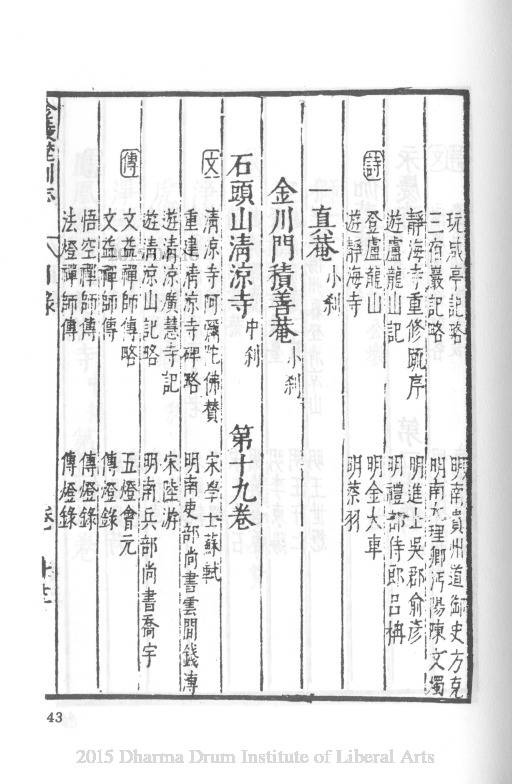 玩咸亭記略 明南貴州道御史方克
三宿巖記略 明南大理卿沔陽陳文燭
靜海寺重修疏序 明進士吳郡俞彥
遊盧龍山記 明禮部侍郎呂柟
詩 登盧龍山 明金大車
遊靜海寺 明蔡羽
一真菴 小刹
金川門積善菴 小刹
石頭山清涼寺 中刹 第十九卷
文 清涼寺阿彌陀佛贊 宋學士蘇軾
重建清涼寺碑略 明南吏部尚書雲間錢溥
遊清涼廣慧寺記 宋陸游
遊清涼山記略 明南兵部尚書喬宇
傳 文益禪師傳略 五燈會元
文益禪師傳 傳燈錄
悟空禪師傳 傳燈錄
法燈禪師傳 傳燈錄
金陵梵刹志 目錄
43
2015 Dharma Drum Institute of Liberal Arts